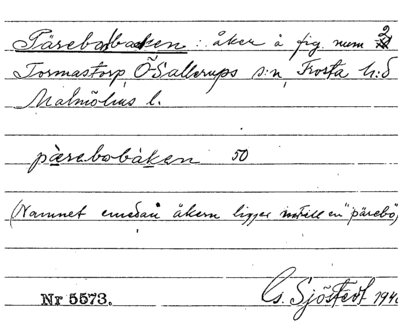 Pärebobacken : åker å fig num 2
Tormastorp, Ö Sallerups s:n, Frosta h:d
Malmöhus l.
pärebobáken 50
(Namnet emedan åkern ligger intill en "pärebo")
Nr 5573. G. Sjöstedt